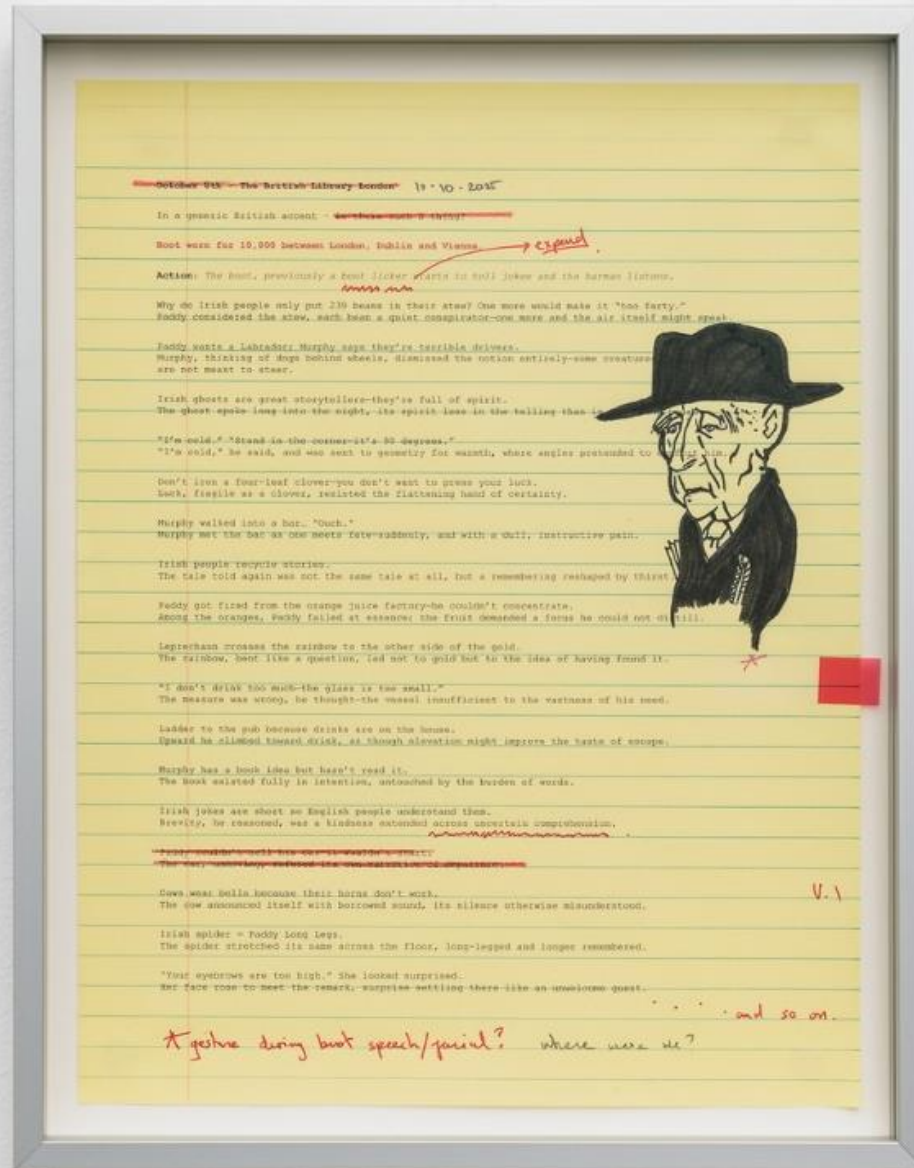 October 8th - The British Library London 10-10-2025
In a generic British accent - is there such a thing?
Boot worn for 10,000 between London, Dublin and Vienna. expand
Action: The boot, previously a boot licker starts to tell jokes and the barman listens.
Why do Irish people only put 239 beans in their stew? One more would make it "too farty."
Paddy considered the stew, each bean a quiet conspirator-one more and the air itself might speak.
Paddy wants a Labrador; Murphy says they're terrible drivers.
Murphy, thinking of dogs behind wheels, dismissed the notion entirely-some creatures
are not meant to steer.
Irish ghosts are great storytellers-they're full of spirit.
The ghost spoke long into the night, its spirit less in the telling than
"I'm cold." "Stand in the corner-it's 90 degrees."
"I'm cold," he said, and was sent to geometry for warmth, where angles pretended to him.
Don't iron a four-leaf clover-you don't want to press your luck.
Luck, fragile as a clover, resisted the flattening hand of certainty.
Murphy walked into a bar. "Ouch."
Murphy met the bar as one meets fate-suddenly, and with a dull, instructive pain.
Irish people recycle stories.
The tale told again was not the same tale at all, but a remembering reshaped by thirst
Paddy got fired from the orange juice factory-he couldn't concentrate.
Among the oranges, Paddy failed at essence; the fruit demanded a focus he could not distill.
Leprechaun crosses the rainbow to the other side of the gold.
The rainbow, bent like a question, led not to gold but to the idea of having found it.
"I don't drink too much-the glass is too small."
The measure was wrong, he thought-the vessel insufficient to the vastness of his need.
Ladder to the pub because drinks are on the house.
Upward he climbed toward drink, as though elevation might improve the taste of escape.
Murphy has a book idea but hasn't read it.
The Book existed fully in intention, untouched by the burden of words.
Irish jokes are short so English people understand them.
Brevity, he reasoned, was a kindness extended across uncertain comprehension.
Paddy couldn't sell his car-it wouldn't start.
The car, unmoving, refused its own
Cows wear bells because their horns don't work.
The cow announced itself with borrowed sound, its silence otherwise misunderstood.
V.1
Irish spider = Paddy Long Legs.
The spider stretched its name across the floor, long-legged and longer remembered.
"Your eyebrows are too high." She looked surprised.
Her face rose to meet the remark, surprise settling there like an unwelcome guest.
. . . . and so on.
* gesture during boot speech/facial? where were we?